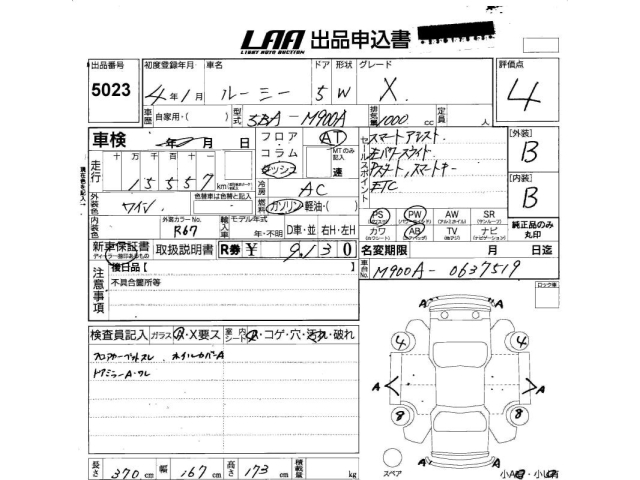 LAA 出品申込書
LIGHT AUTO AUCTION
出品番号 初度登録年月 車名 ドア 形状 グレード 評価点
5023 4年1月 ルーミー 5 W X 4
車歴 自家用・( ) 型式 M900A 排気量 1000 cc 定員 人
車検 年 月 日 フロア AT セールスポイント スマートアシスト [外装]
コラム MTのみ記入 B
走行 十万 万 千 百 十 一 ダッシュ 速
15557 km 冷房 AC スマートキー [内装]
外装色 色替車は色替と記入 燃料 ガソリン・軽油・( ) ETC B
ワイン
外装カラーNo. 輸入車 モデル年式 PS PW AW SR 純正品のみ丸印
R67 年・不明 D車・並 右H・左H カワ AB TV ナビ
新車保証書 取扱説明書 R券 ¥ 9130 名変期限 月 日迄
注意事項 後日品【 】 車台No. M900A-0637519
不具合箇所等 ロック車
検査員記入 ガラス A・X要ス 室内シート A・コゲ・穴・汚れ・破れ
フロアカーペットスレ ホイルカバーA
ドアミラーA・ワレ
A A
4 4
A A
8 8
A A
長さ 370 cm 幅 167 cm 高さ 173 cm 積載量 kg スペア